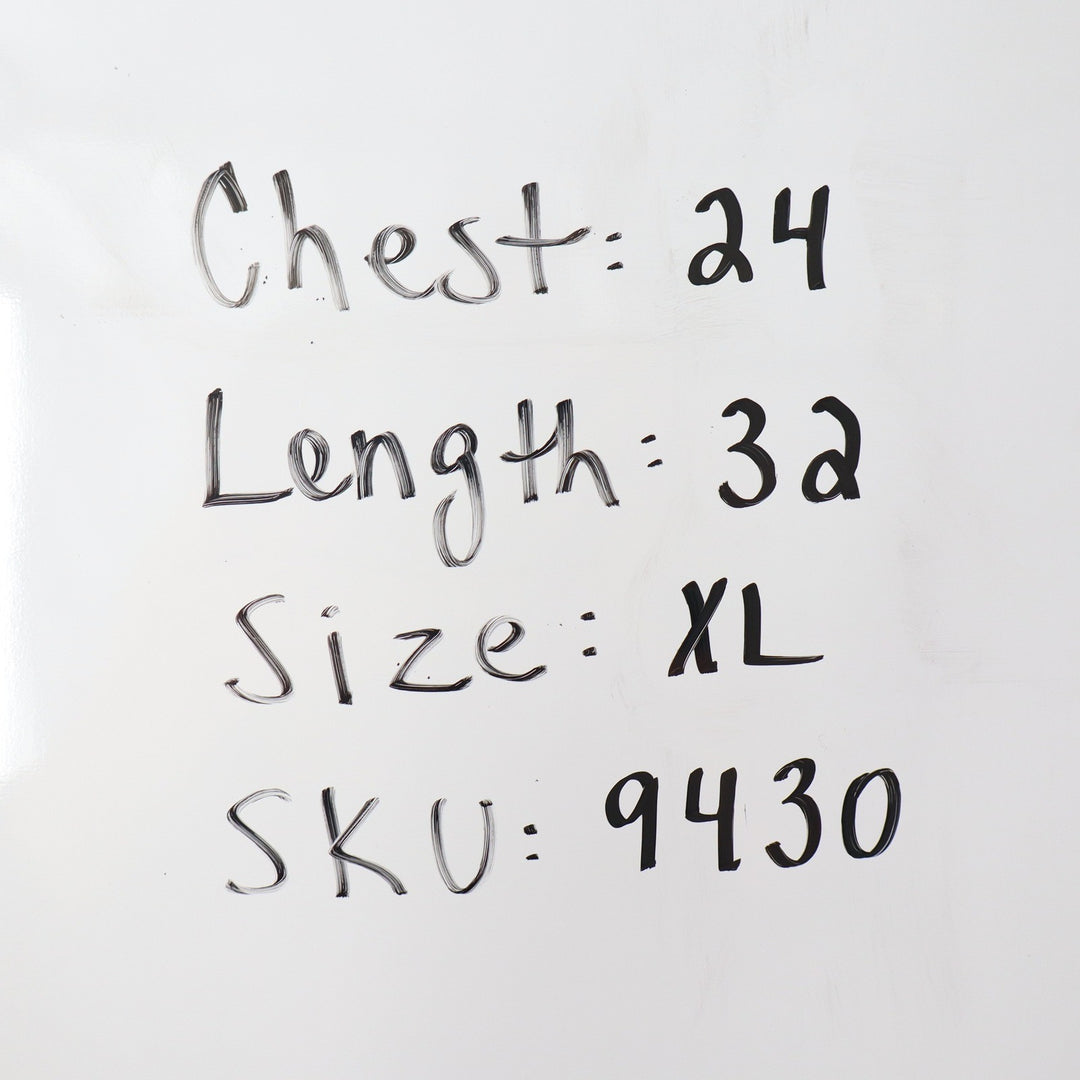 Chest: 24
Length: 32
Size: XL
SKU: 9430